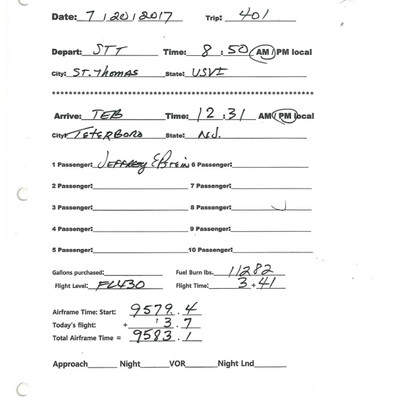 Date: 7/20/2017 Trip: 401
Depart: STT Time: 8:50 AM/PM local
City: ST. THOMAS State: USVI
Arrive: TEB Time: 12:31 AM/PM local
City: TETERBORO State: N.J.
1 Passenger: JEFFREY EPSTEIN 6 Passenger:
2 Passenger: 7 Passenger:
3 Passenger: 8 Passenger:
4 Passenger: 9 Passenger:
5 Passenger: 10 Passenger:
Gallons purchased: Fuel Burn lbs. 11282
Flight Level: FL430 Flight Time: 3+41
Airframe Time: Start: 9579.4
Today's flight: + 3.7
Total Airframe Time = 9583.1
Approach Night VOR Night Lnd